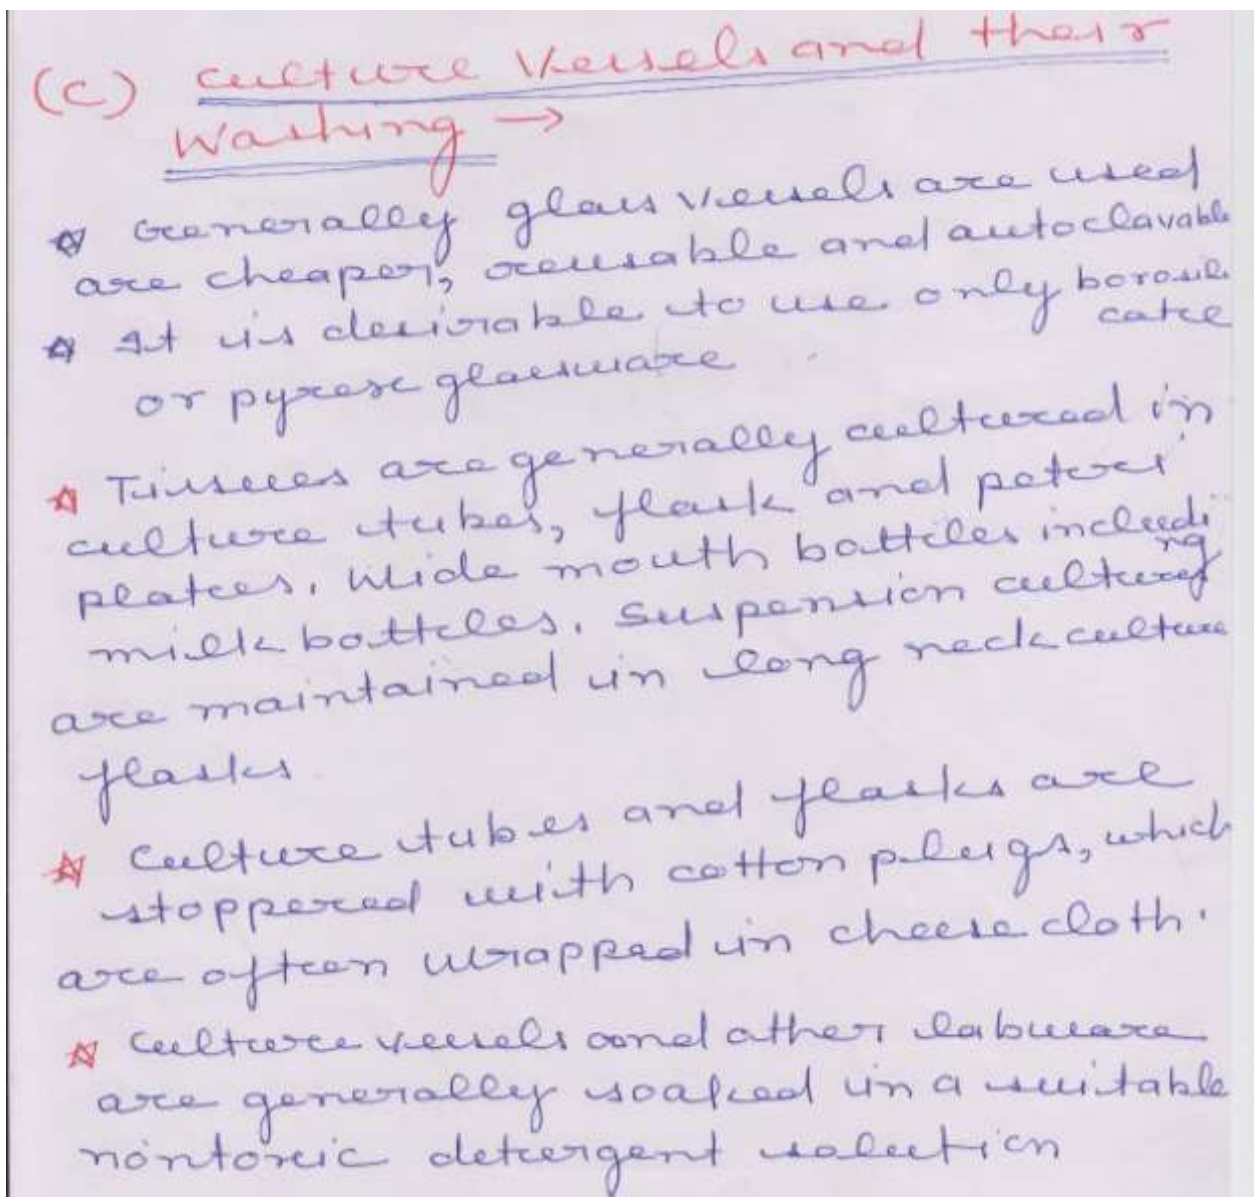 (C) Culture Vessels and their
Washing →
☆ Generally glass vessels are used
are cheaper, reusable and autoclavable
☆ It is desirable to use only borosili
cate
or pyrex glassware
☆ Tissues are generally cultured in
culture tubes, flask and petri
plates. Wide mouth bottles includi
ng
milk bottles. Suspension cultures
are maintained in long neck culture
flasks
☆ Culture tubes and flasks are
stoppered with cotton plugs, which
are often wrapped in cheese cloth.
☆ Culture vessels and other labware
are generally soaked in a suitable
nontoxic detergent solution